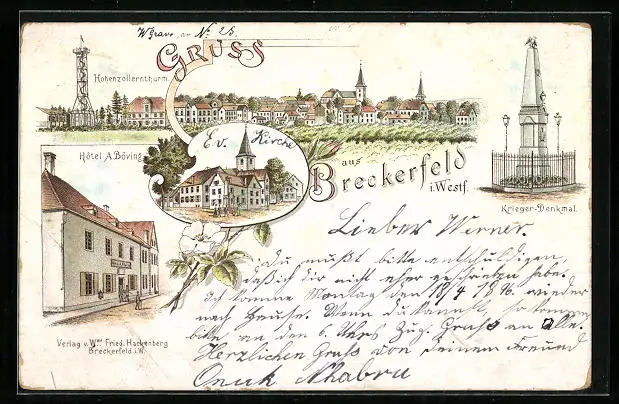 Gruss
Hohenzollernthurm.
Hôtel A. Böving.
Ev. Kirche
aus
Breckerfeld
i. Westf.
Krieger-Denkmal.
Lieber Werner.
Du mußt bitte entschuldigen,
daß ich dir nicht eher geschrieben habe.
Ich komme Montag den 18/4 1896 wieder
nach Hause. Wenn du kannst, so komme
bitte an den 6 Uhr Zug. Gruß an alle.
Herzlichen Gruß von deinem Freund
Verlag v. Wwe Fried. Hackenberg
Breckerfeld i. W.